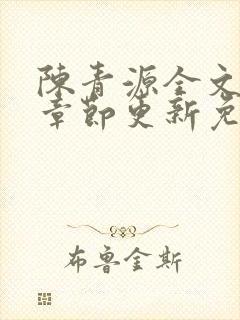 陳青源全文
章節更新免
布魯金斯